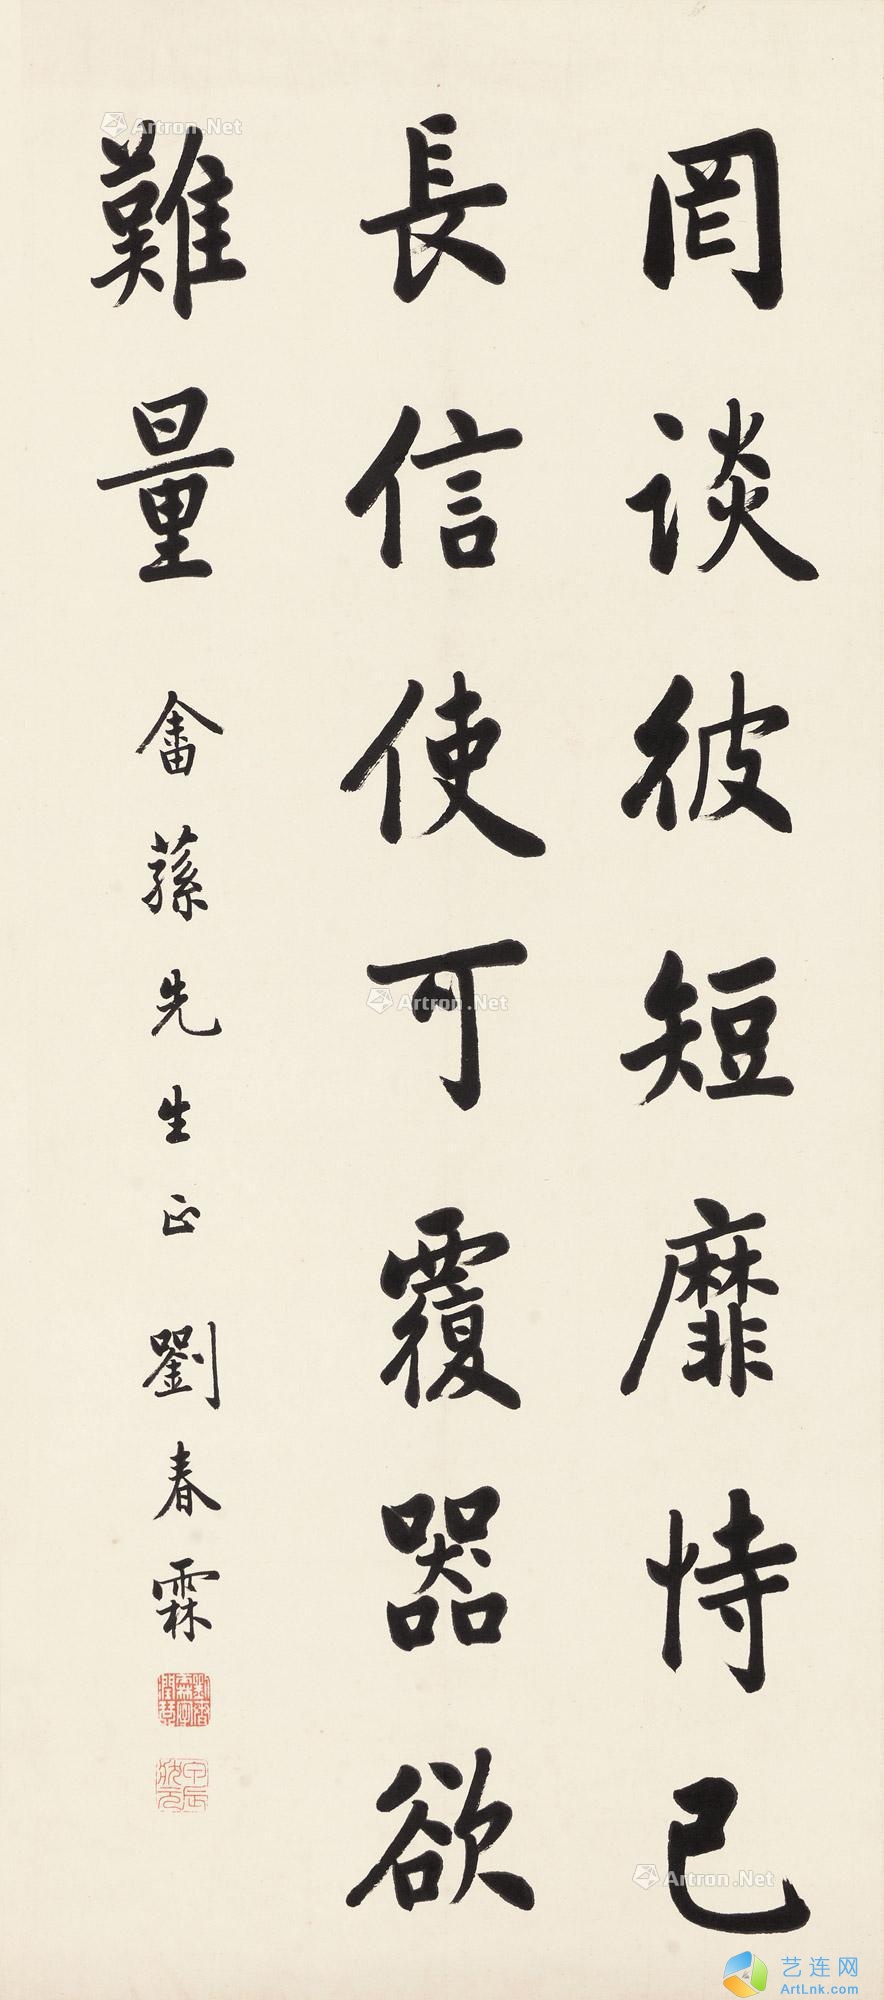 罔谈彼短靡恃己
長信使可覆器欲
難量
畬蓀先生正 劉春霖
劉春霖字潤琴
甲辰狀元
Artron.Net
Artron.Net
Artron.Net
艺连网
ArtLnk.com